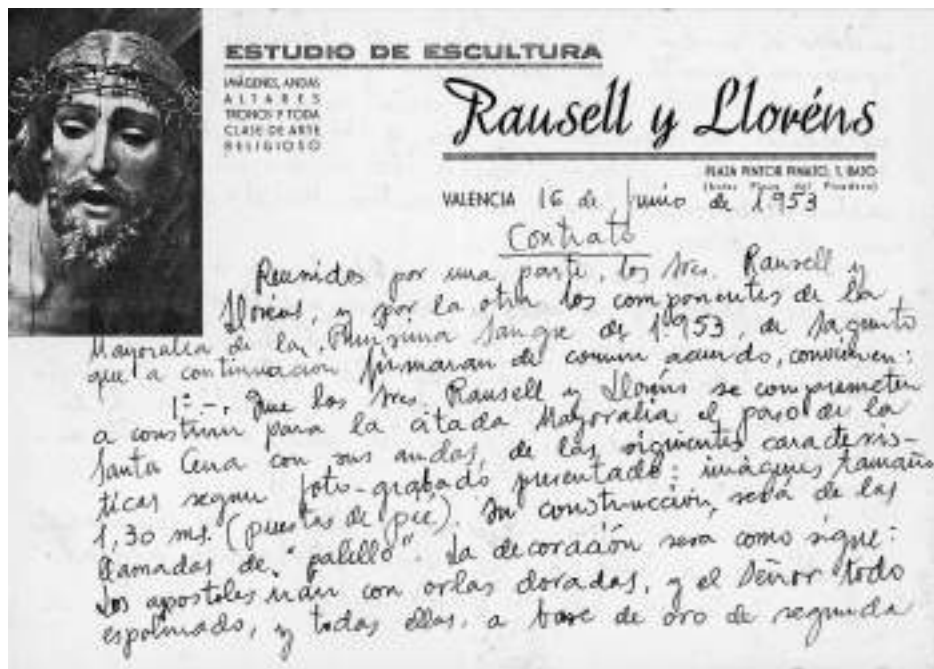 ESTUDIO DE ESCULTURA
IMÁGENES, ANDAS
ALTARES
TRONOS Y TODA
CLASE DE ARTE
RELIGIOSO
Rausell y Lloréns
PLAZA PINTOR PINAZO, 1, BAJO
(Antes Plaza del Picadero)
VALENCIA 16 de Junio de 1953
Contrato
Reunidos por una parte, los Sres. Rausell y
Lloréns, y por la otra los componentes de la
Mayoralia de la Purisima Sangre de 1.953, de Sagunto
que a continuacion firmaran de comun acuerdo, convienen:
1º -. Que los Sres. Rausell y Lloréns se comprometen
a construir para la citada Mayoralia el paso de la
Santa Cena con sus andas, de las siguientes caracteris-
ticas segun foto-grabado presentado: imágenes tamaño
1,30 ms. (puestas de pie). Su construcción, será de las
llamadas de "palillo". La decoración sera como sigue:
Los apostoles irán con orlas doradas, y el Señor todo
espolinado, y todas ellas, a base de oro de segunda